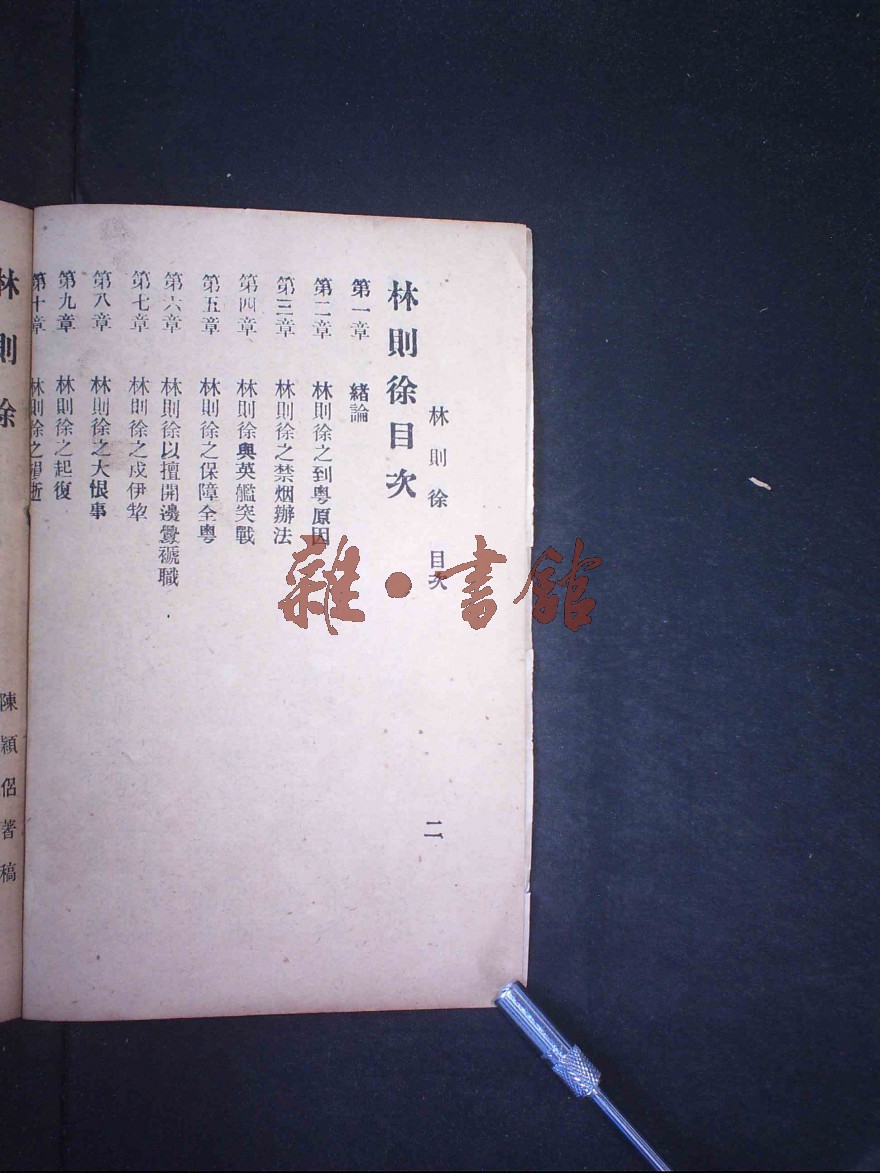 林則徐 目次 二
林則徐目次
第一章 緒論
第二章 林則徐之到粵原因
第三章 林則徐之禁烟辦法
第四章 林則徐與英艦突戰
第五章 林則徐之保障全粵
第六章 林則徐以擅開邊釁褫職
第七章 林則徐之戍伊犂
第八章 林則徐之大恨事
第九章 林則徐之起復
第十章 林則徐之 逝
林則徐 陳穎侶著稿
雜·書館